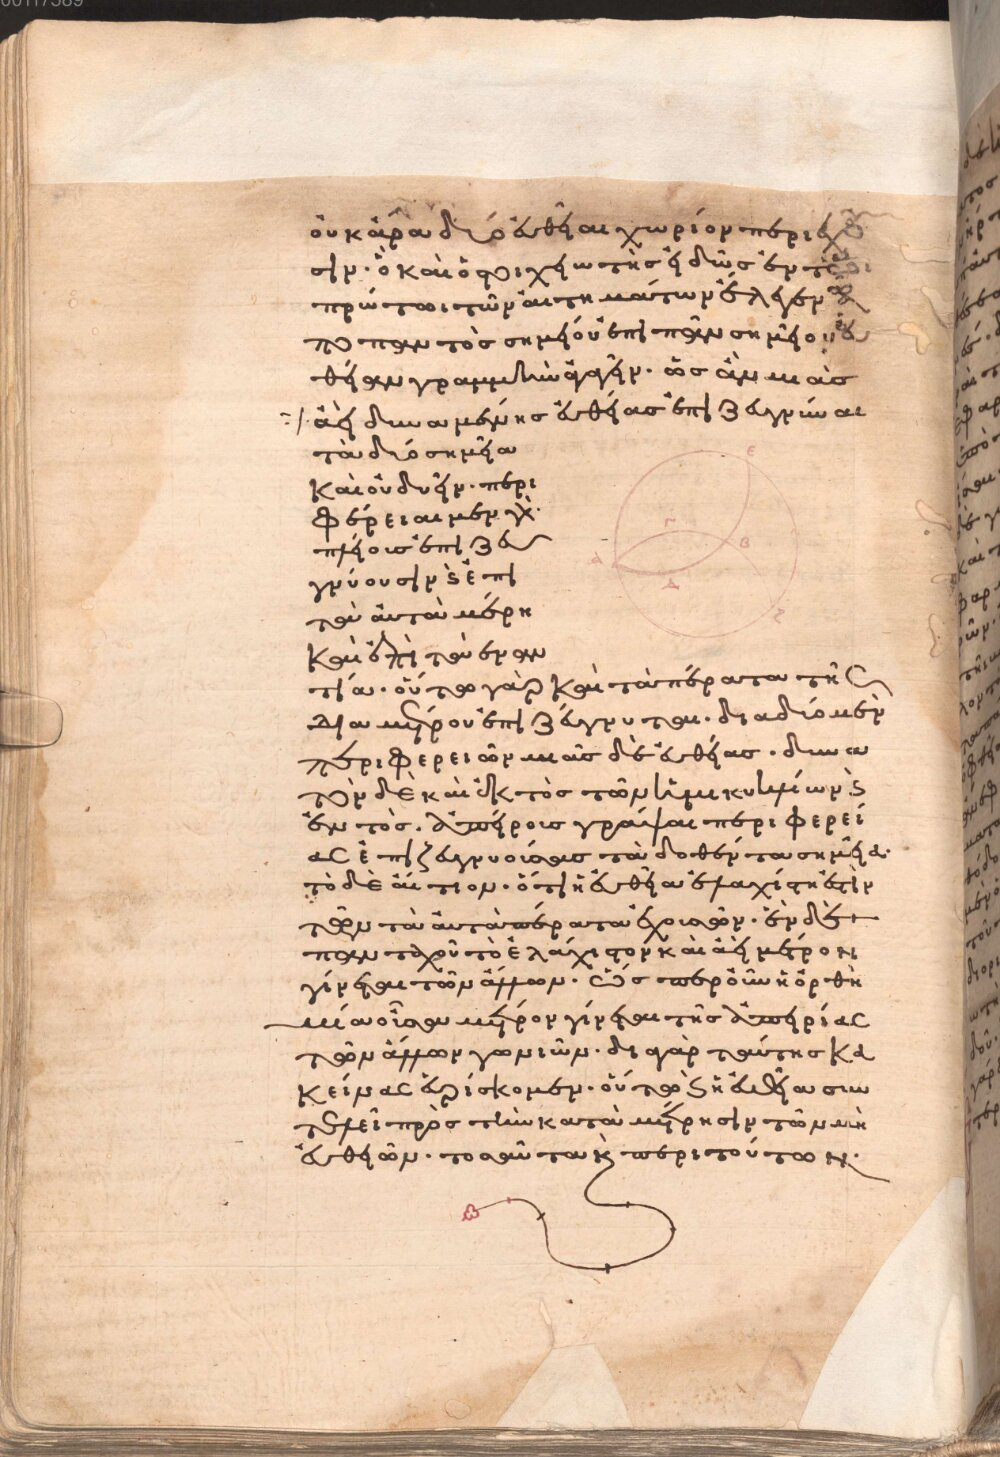 οὐκ ἄρα δύο εὐθεῖαι χωρίον περιέχου
σιν. ὃ καὶ ὁ στοιχειωτὴς εἰδὼς ἐν τῷ
πρώτωι τῶν αἰτημάτων ἔλεγεν ἀ
πὸ παντὸς σημείου ἐπὶ πᾶν σημεῖον εὐ
θεῖαν γραμμὴν ἀγαγεῖν. ὡς ἂν μιᾶς
ἀεὶ δυναμένης εὐθείας ἐπιζευγνύναι
τὰ δύο σημεῖα
καὶ οὐ δυεῖν. περι
φέρειαι μὲν γὰρ
πλείους ἐπιζευ
γνύουσιν καὶ ἐπὶ
τὰ αὐτὰ μέρη
καὶ ἐπὶ τὰ ἐναν
τία. οὕτω γὰρ καὶ τὰ πέρατα τῆς
διαμέτρου ἐπιζεύγνυται. διὰ δύο μὲν
περιφερειῶν μιᾶς δὲ εὐθείας. δυνα
τὸν δὲ καὶ ἐκτὸς τῶν ἡμικυκλίων καὶ
ἐντὸς. ἀπείροις γράψαι περιφερεί
ας ἐπιζευγνυούσας τὰ δοθέντα σημεῖα.
τὸ δὲ αἴτιον. ὅτι ἡ εὐθεῖα ἐλαχίστη ἐστὶν
τῶν τὰ αὐτὰ πέρατα ἐχουσῶν. ἓν δὲ
πανταχοῦ τὸ ἐλάχιστον καὶ ἀεὶ μέτρον
γίνεται τῶν ἄλλων. ὥσπερ οὖν ἡ ὀρθὴ
μία οὖσα μέτρον γίνεται τῆς ἀπειρίας
τῶν ἄλλων γωνιῶν. διὰ γὰρ ταύτης κα
κείνας εὑρίσκομεν. οὕτω καὶ ἡ εὐθεῖα συν
τελεῖ πρὸς τὴν καταμέτρησιν τῶν μὴ
εὐθειῶν. τοσαῦτα καὶ περὶ τούτων.
Ε
Γ
Β
Α
Δ
Ζ